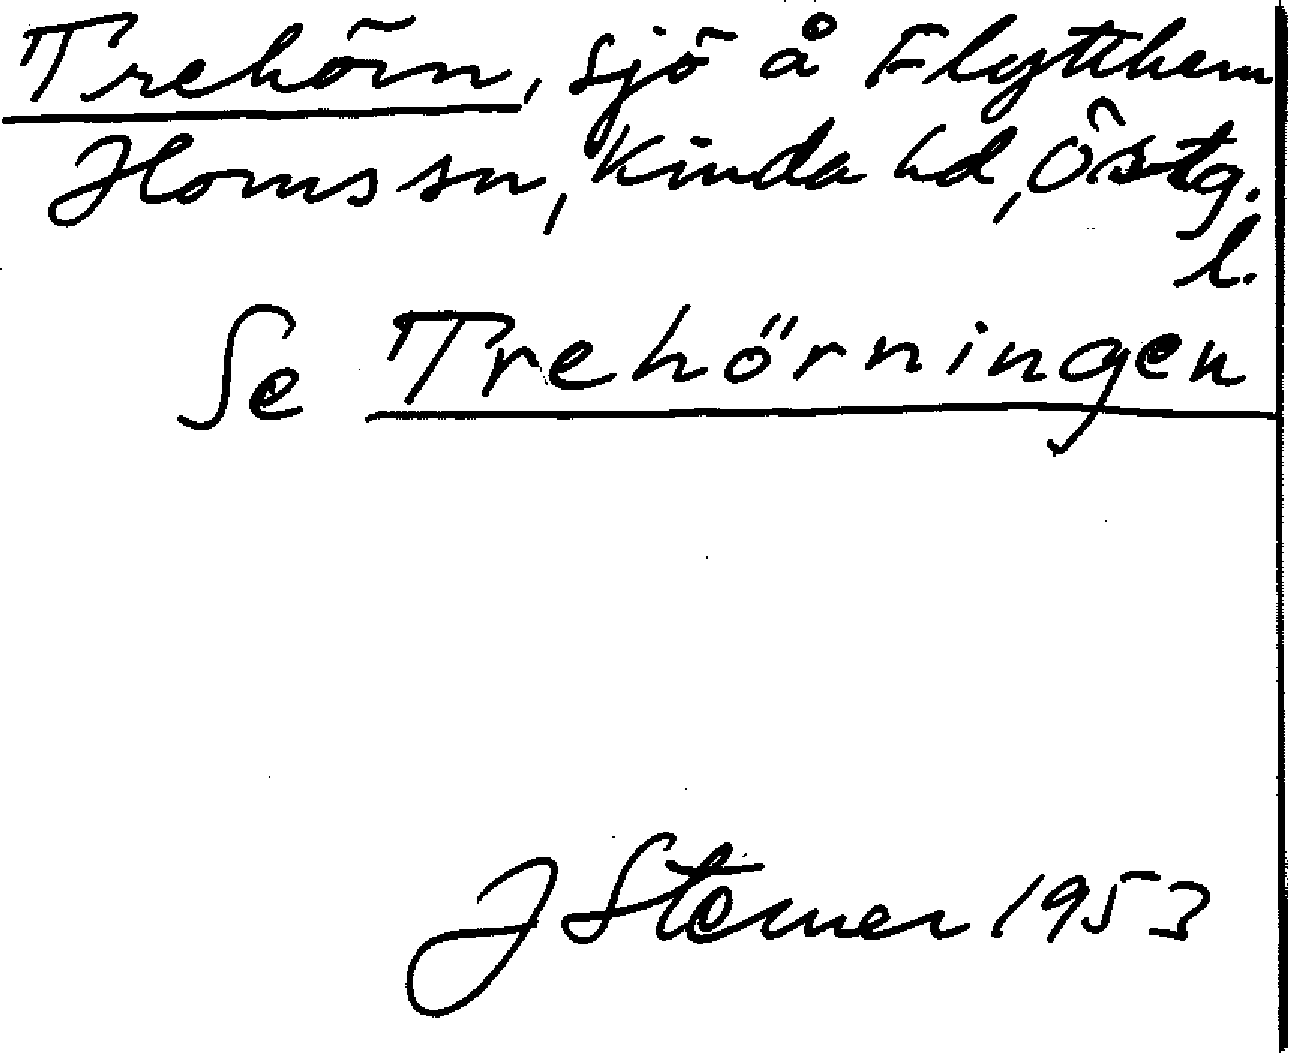 Trehörn, sjö å Flytthem
Horns sn, Kinda hd, Östg.
l.
Se Trehörningen
J Sterner 1953